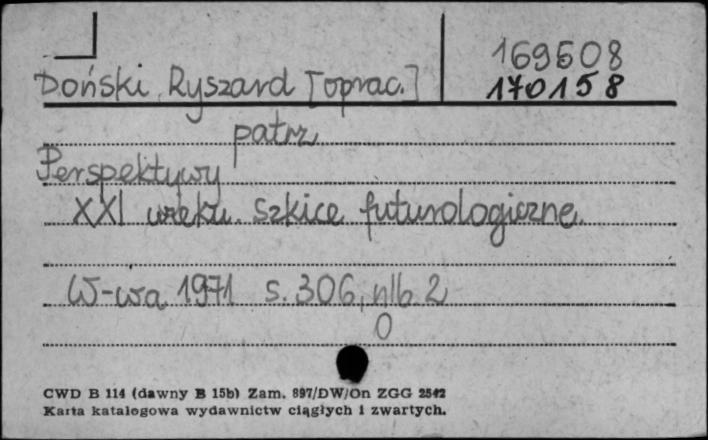 169508
Doński, Ryszard [oprac.] 170158
patrz
Perspektywy
XXI wieku. Szkice futurologiczne.
W-wa 1971 s. 306, nlb 2
0
CWD B 114 (dawny B 15b) Zam. 897/DW/On ZGG 2542
Karta katalogowa wydawnictw ciągłych i zwartych.